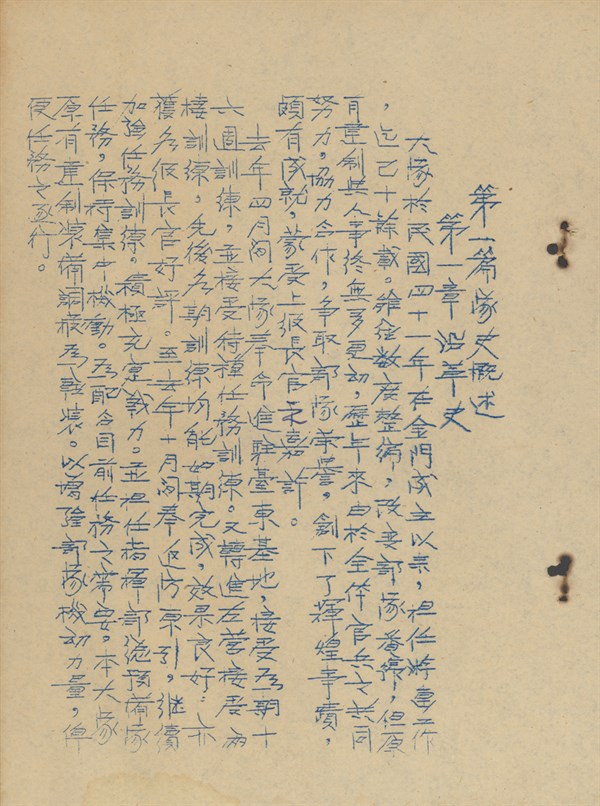 第一篇 隊史概述
第一章 沿革史
大隊於民國四十一年在金門成立以來，担任將軍工作
，迄已十餘載。雖經數度整術，改变部隊番號，但原
有重制與人事終無多更动，歷年來由於全体官兵之共同
努力，協力合作，爭取部隊榮譽，創下了輝煌事蹟，
頗有成就，蒙受上级長官之嘉許。
去年四月间大隊奉命進駐臺東基地，接受為期十
六週訓練，並接受特種任務訓練。又轉進左营接受兩
棲訓練，先後各期訓練均能如期完成，效果良好；亦
獲各级長官好評。至去年十月间奉返防原引，继續
加強任務訓練。積極充實戰力。並担任指揮部總預備隊
任務，保持集中機動。為配合目前任務之需要。本大隊
原有重制装備調換為輕装。以增強部隊機动力量，俾
便任務之遂行。